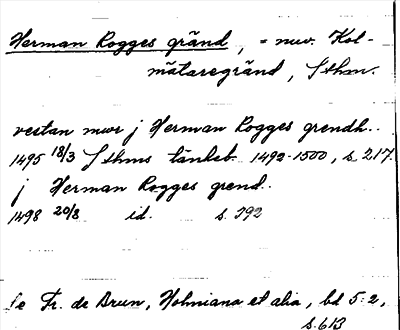 Herman Rogges gränd, = nuv. Kol-
mätaregränd, Sthm.
vestan mwr j Herman Rogges grendh..
1495 18/3 Sthms tänkeb. 1492-1500, s. 217.
j Herman Rogges grend..
1498 20/8 id. s. 392
Se Fr. de Brun, Holmiana et alia, bd 5:2,
s. 613